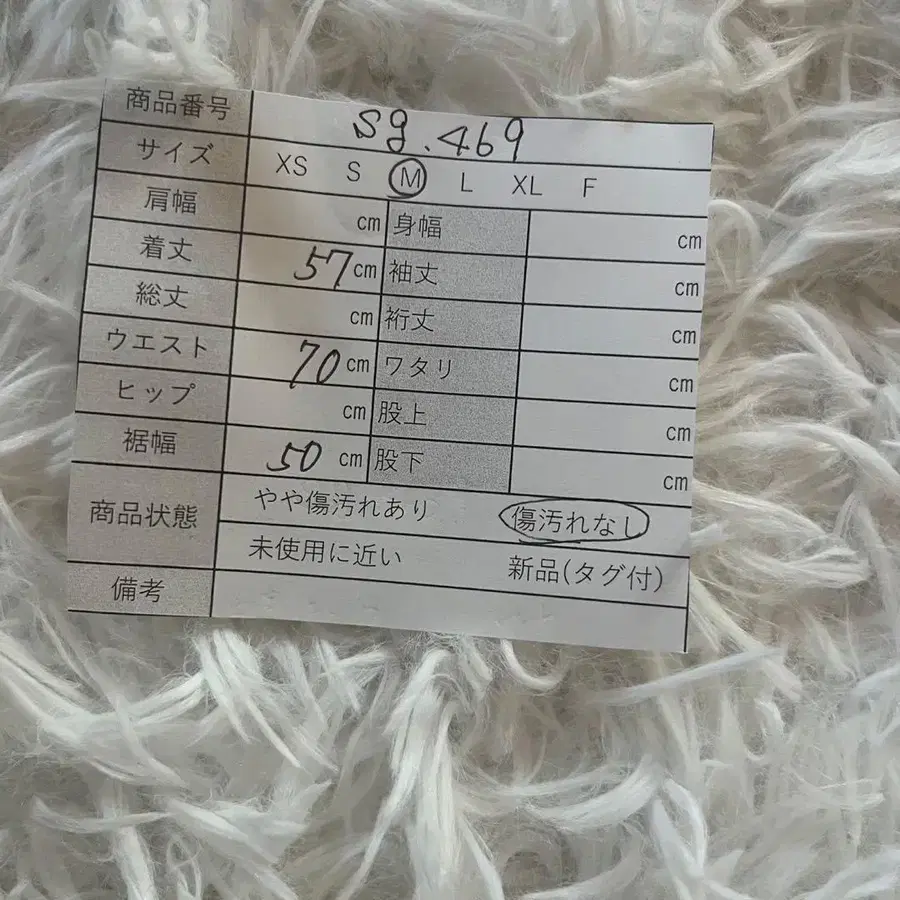 商品番号 sg.469
サイズ XS S M L XL F
肩幅 cm 身幅 cm
着丈 57cm 袖丈 cm
総丈 cm 裄丈 cm
ウエスト 70cm ワタリ cm
ヒップ cm 股上 cm
裾幅 50cm 股下 cm
商品状態 やや傷汚れあり 傷汚れなし
未使用に近い 新品(タグ付)
備考